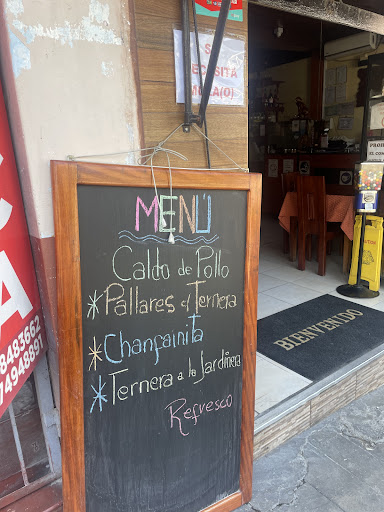 SE
NECESITA
MOZA(O)
MENÚ
Caldo de Pollo
* Pallares c/ Ternera
* Chanfainita
* Ternera a la Jardinera
Refresco
BIENVENIDO
8483662
74948897
A